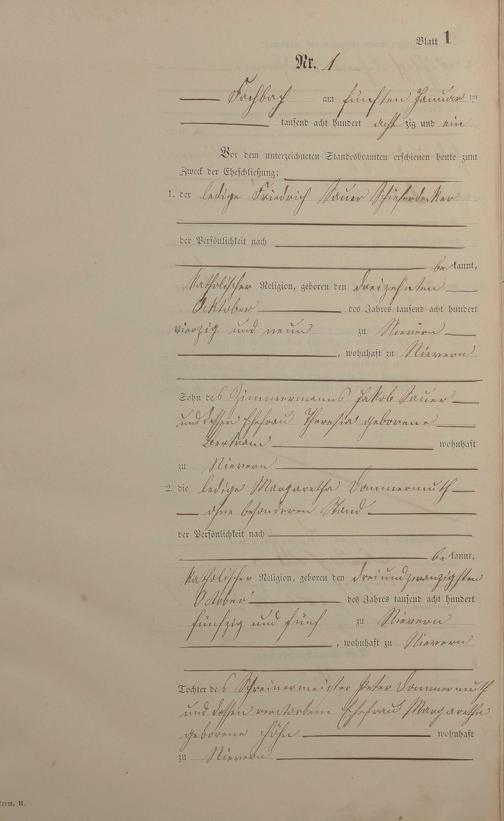 Blatt 1
Nr. 1
Fachbach am fünften Januar ein
tausend acht hundert acht zig und ein
Vor dem unterzeichneten Standesbeamten erschienen heute zum
Zweck der Eheschließung:
1. der ledige Friedrich Sauer Schieferdecker
der Persönlichkeit nach
be kannt,
katholischer Religion, geboren den dreizehnten
Oktober des Jahres tausend acht hundert
vierzig und neun zu Nievern
, wohnhaft zu Nievern
Sohn des Zimmermanns Jakob Sauer
und dessen Ehefrau Theresia geborene
Bertram wohnhaft
zu Nievern
2. die ledige Margaretha Dommermuth
ohne besonderen Stand
der Persönlichkeit nach
be kannt,
katholischer Religion, geboren den dreiundzwanzigsten
October des Jahres tausend acht hundert
fünfzig und fünf zu Nievern
, wohnhaft zu Nievern
Tochter des Schreinermeister Peter Dommermuth
und dessen verstorbene Ehefrau Margaretha
geborene Höhn wohnhaft
zu Nievern